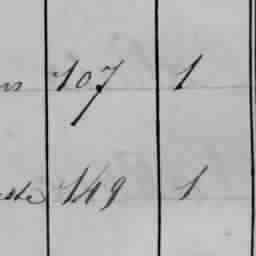 107 1
149 1